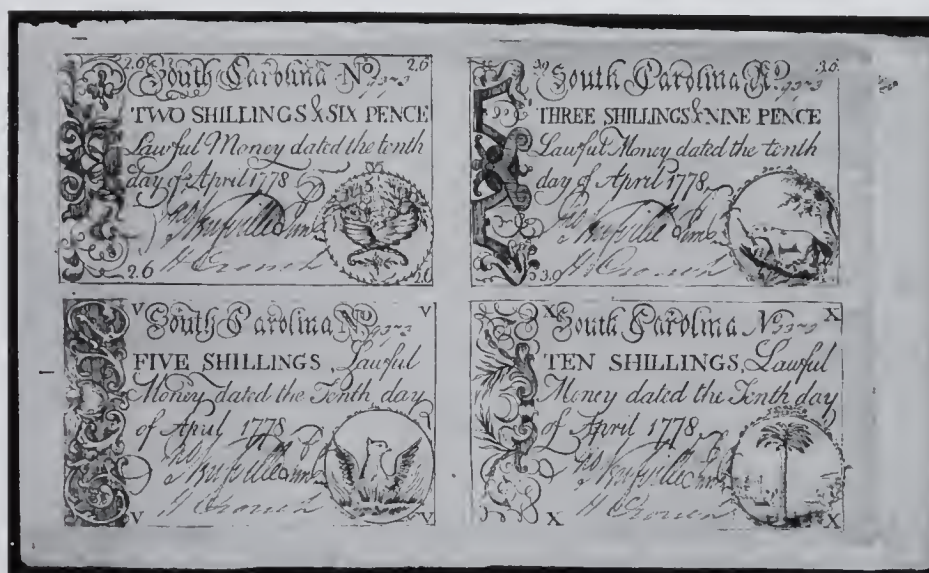 2.6 South Carolina No. 9373 2.6
TWO SHILLINGS & SIX PENCE
Lawful Money dated the tenth
day of April 1778
H Crouch
2.6 2.6
3.9 South Carolina No. 9373 3.9
THREE SHILLINGS & NINE PENCE
Lawful Money dated the tenth
day of April 1778
H Crouch
3.9
V South Carolina No. 9373 V
FIVE SHILLINGS, Lawful
Money dated the Tenth day
of April 1778
H Crouch
V V
X South Carolina No. 9373 X
TEN SHILLINGS, Lawful
Money dated the Tenth day
of April 1778
H Crouch
X X